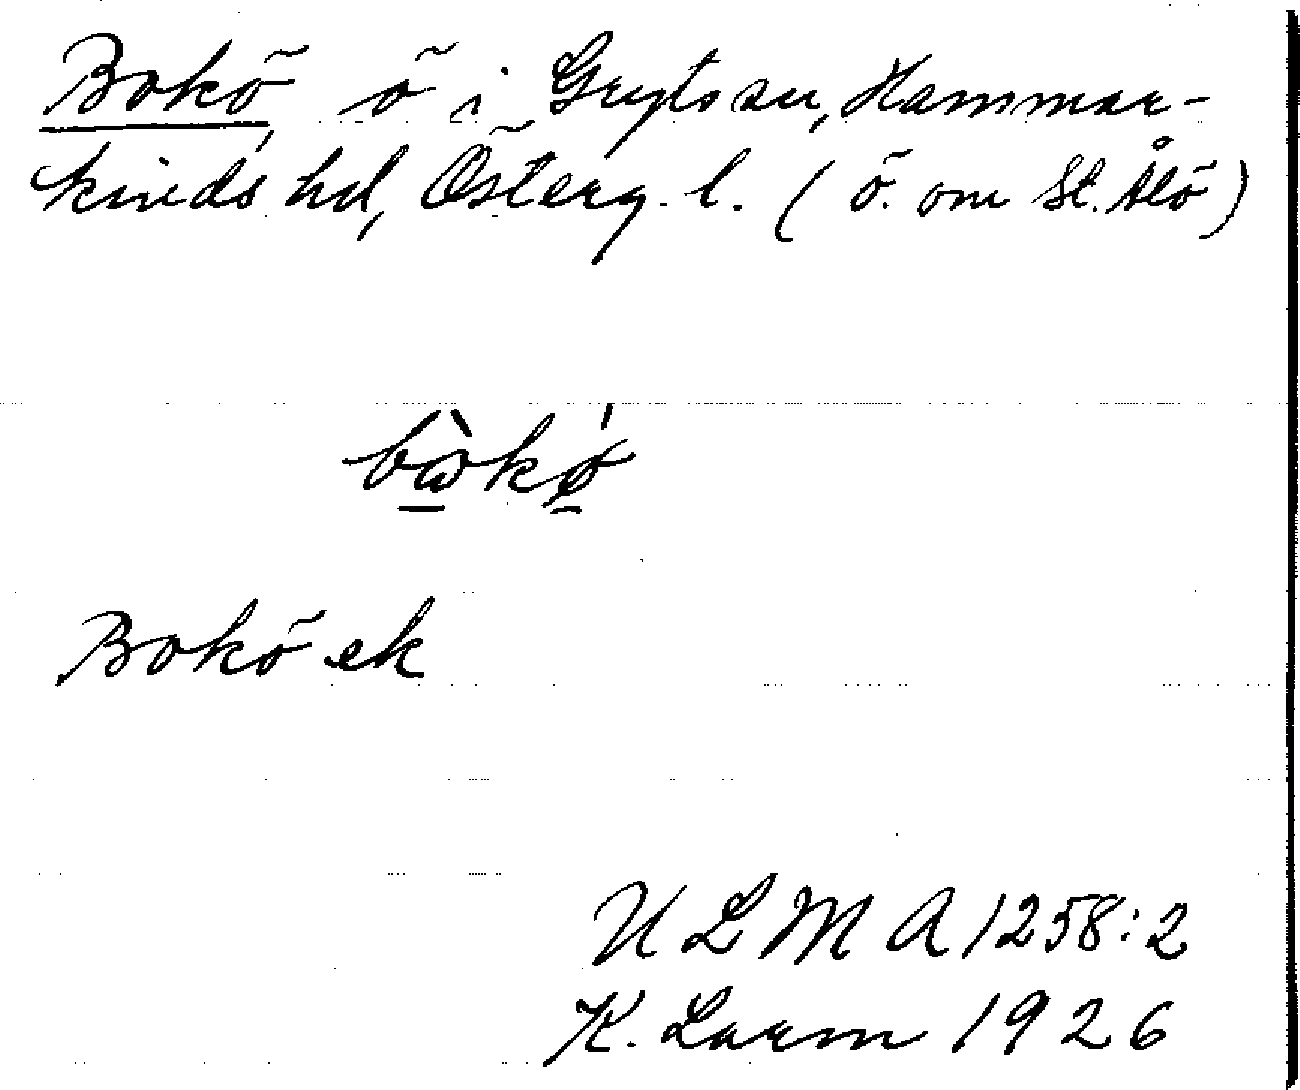 Bokö, ö i Gryts sn, Hammar-
kinds hd, Österg. l. (ö. om St. Ålö)
bɷ̀kǿ
Bokö ek
ULMA 1258:2
K. Larm 1926